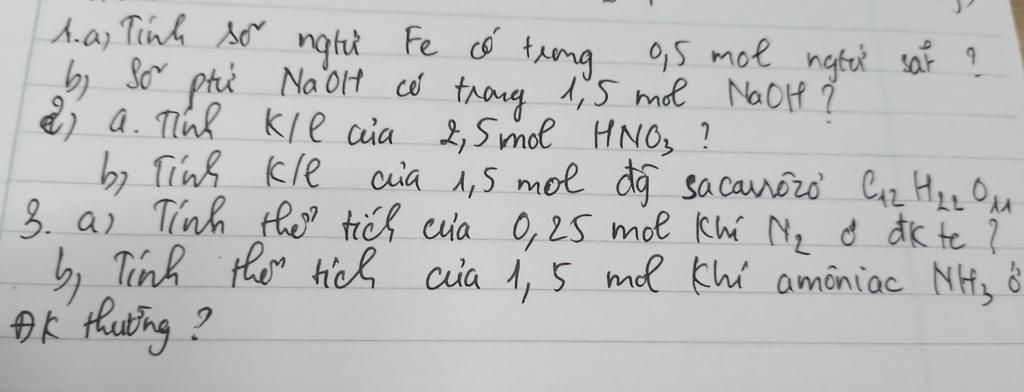 1. a, Tính số ngtử Fe có trong 0,5 mol ngtử sắt ?
b, Số ptử NaOH có trong 1,5 mol NaOH ?
2) a. Tính K/l của 2,5 mol HNO₃ ?
b, Tính K/l của 1,5 mol đg saccarôzơ C₁₂H₂₂O₁₁
3. a) Tính thể tích của 0,25 mol khí N₂ ở đktc ?
b, Tính thể tích của 1,5 mol khí amôniac NH₃ ở
ĐK thường ?